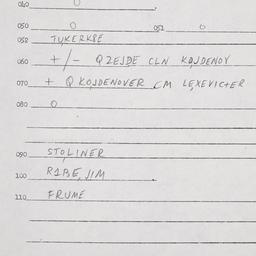 040 0
050 0 051 0
058 TUKERKSE
060 +/- QZEJDE CLN KOJDENOV
070 + Q KOJDENOVER CM LEXEVICTER
080 0
090 STOLINER
100 RIBE, JIM
110 FRUME